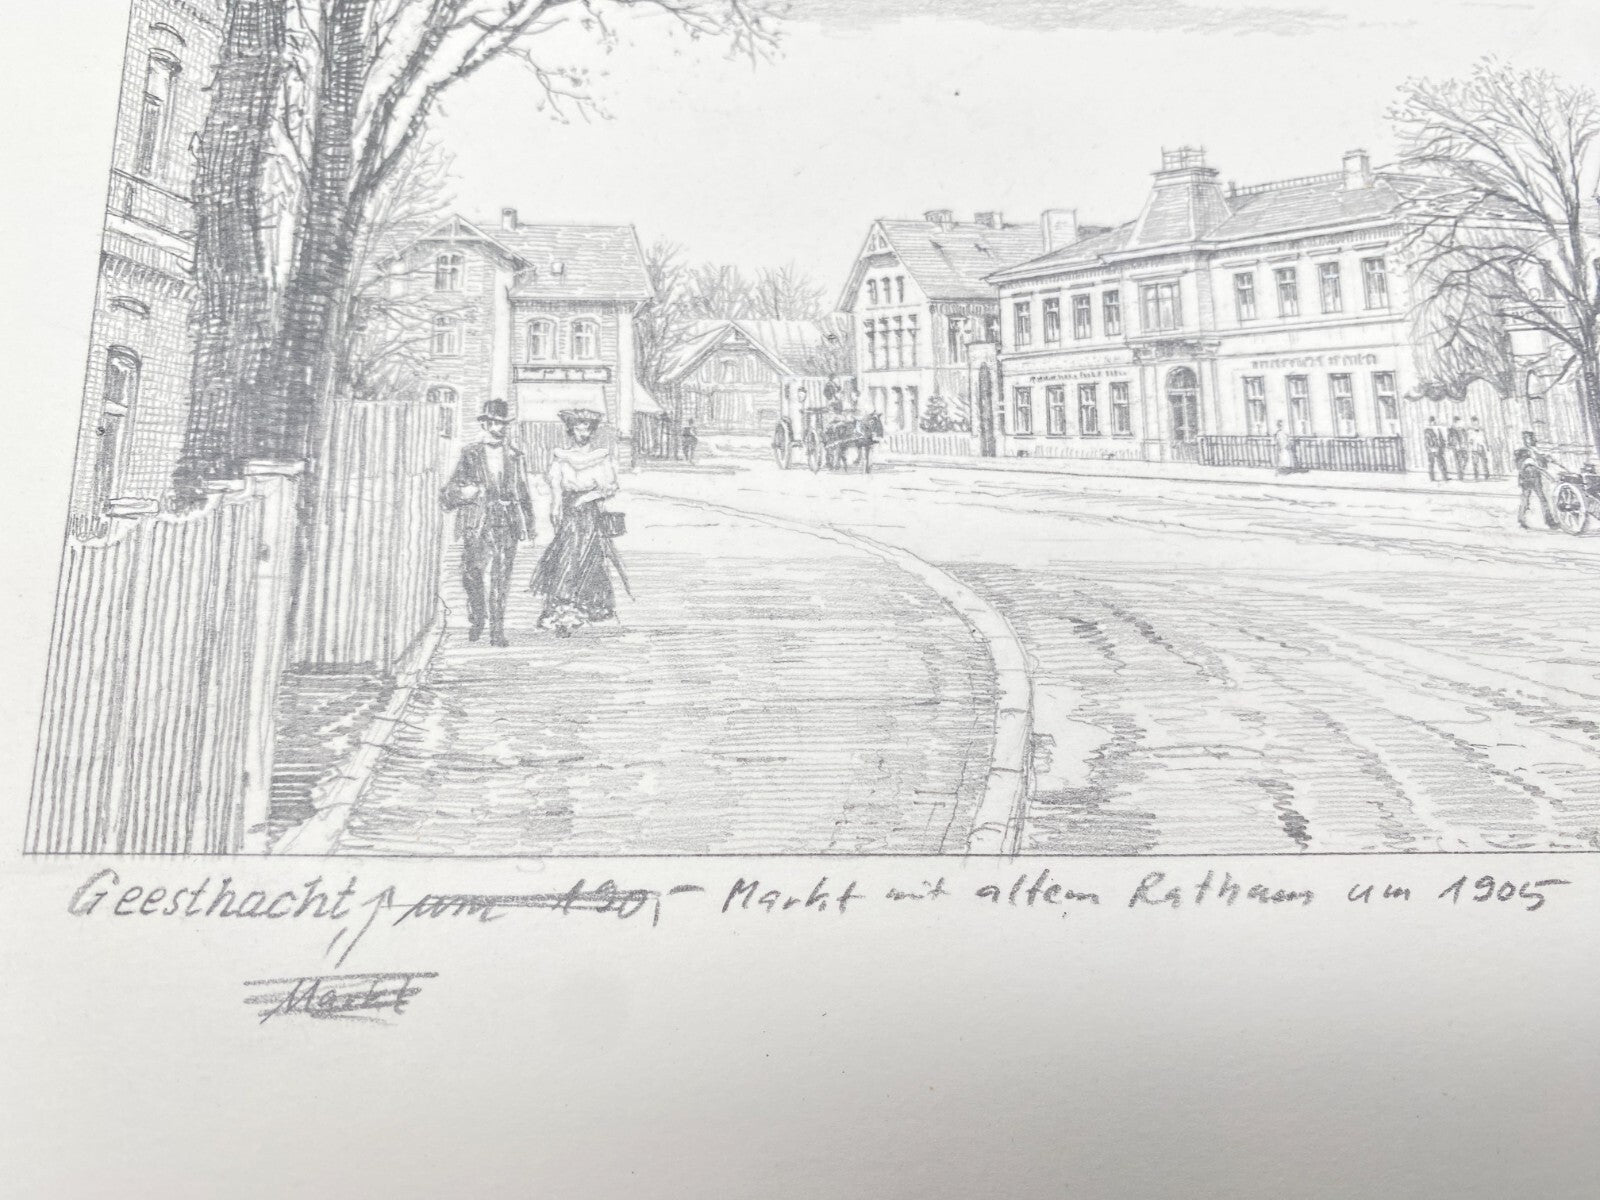 Geesthacht, um 190, - Markt mit altem Rathaus um 1905
Markt